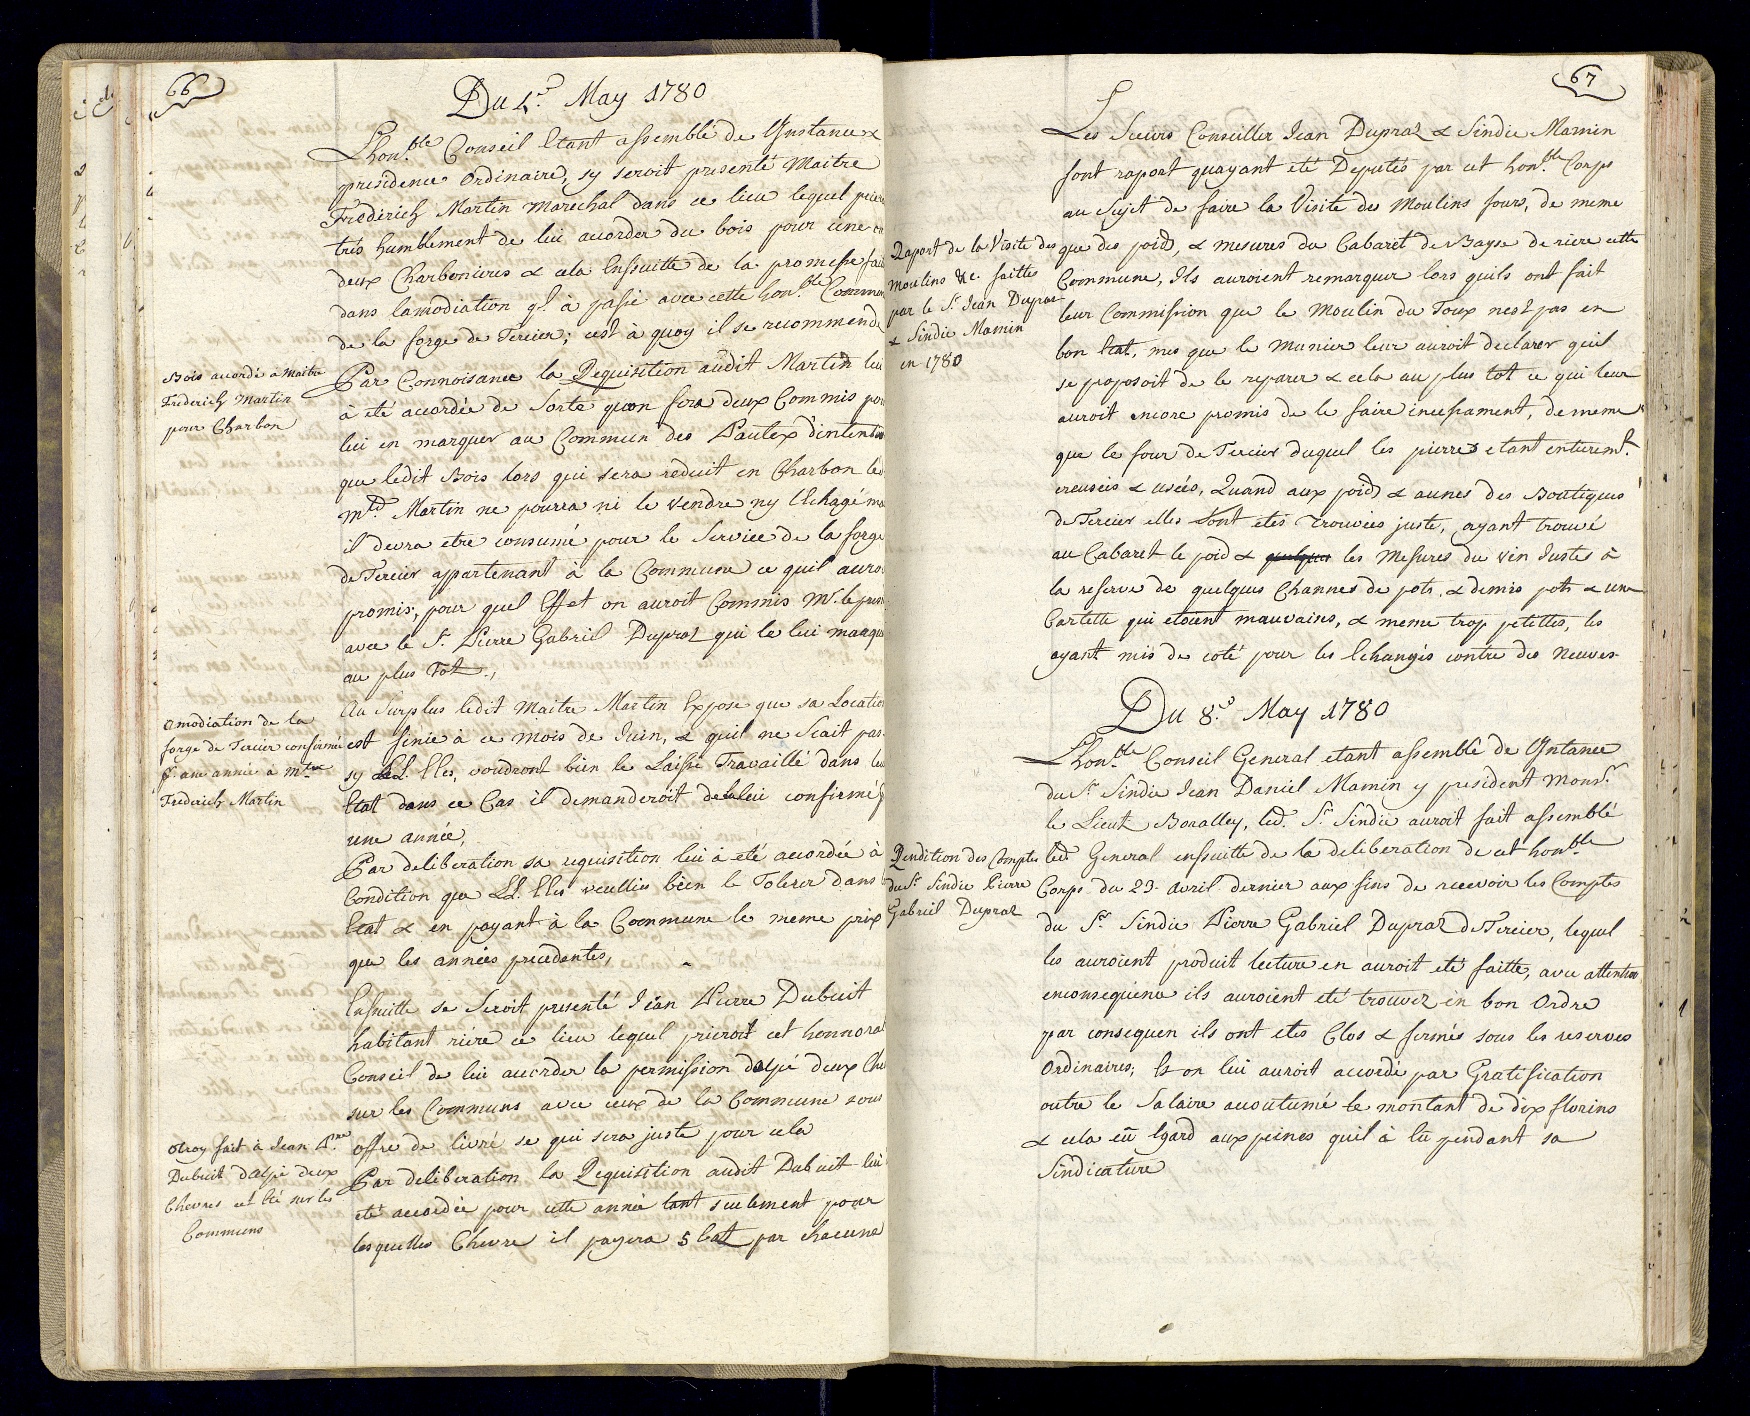 66
Du 4.e May 1780
Lhon.ble Conseil Etant assemblé de Instance &
presidence ordinaire, sy seroit presenté Maitre
Frederich Martin marechal dans ce lieu lequel
trés humblement de lui accorder du bois pour une
deux Charbonieres & cela Ensuitte de la promesse
dans lamodiation ql. à passé avec cette hon.ble
de la forge de Tercier; cest à quoy il se recommende
Bois accordé a Maitre
Frederich Martin
pour Charbon
Par Connoisance la Requisition audit Martin lui
à eté accordée de Sorte quon fera deux Commis
lui en marquer au Commun des Pautex
que ledit Bois lors qui sera reduit en Charbon
m.e Martin ne pourra ni le vendre ny lEchagé
il devra etre consumé pour le Service de la forge
de Tercier appartenant à la Commune ce quil
promis; pour quel Effet on auroit Commis Mr. le
avec le Sr. Pierre Gabriel Dupraz qui le lui
au plus Tot.,
amodiation de la
forge de Tercier confirmé
p. une année à m.tre
Frederich Martin
Au Surplus ledit Maitre Martin Expose que sa
est finie à ce mois de Juin, & quil ne Scait pas
sy LL. EEes, voudront bien le Laissé Travaillé dans
Etat dans ce Cas il demanderoit de la lui confirmé
une année,
Par deliberation sa requisition lui à eté accordée à
Condition que LL. EEes veullies bien le Tolerer dans
Etat & en payant à la Commune le meme prix
que les années precedentes,
Ensuitte se Seroit presenté Jean Pierre Dubuit
habitant riere ce lieu lequel prieroit cet
Conseil de lui accorder la permission dalpé deux
sur les Communs avec ceux de la Commune sous
offre de livré se qui sera juste pour cela
otroy fait à Jean P.rre
Dubuit dalpé deux
Chevres cet Eté sur les
Communs
Par deliberation la Requisition audit Dubuit lui
eté accordée pour cette année tant seulement pour
lesquelles Chevre il payera 5 batz par chacune
67
Les Sieurs Conseiller Jean Dupraz & Sindic Mamin
font raport quayant été Deputés par cet hon.ble Corps
au Sujet de faire la Visite des Moulins fours, de meme
Raport de la Visite des
Moulins &c. faitte
par le Sr. Jean Dupraz
& Sindic Mamin
en 1780
que des poids, & mesures du Cabaret de Bayse de riere cette
Commune, Ils auroient remarquer lors quils ont fait
leur Commission que le Moulin du Toux nest pas en
bon Etat, mes que le Munier leur auroit declarer quil
se proposoit de le reparer & cela au plus tot ce qui leur
auroit encore promis de le faire incessament, de meme
que le four de Tercier duquel les pierres etant enturem.t
creuseés & useés, Quand aux poids & aunes des Boutiques
de Tercier elles Sont etés Trouvées juste, ayant trouvé
au Cabaret le poid & quelques les Mesures du vin Justes à
la reserve de quelques Channes de pots, & demis pots & une
Cartette qui etoient mauvains, & meme trop petittes, les
ayant mis de coté pour les Echangés contre des Neuves
Du 8.e May 1780
Lhon.ble Conseil General etant assemblé de Instance
du Sr. Sindic Jean Daniel Mamin y president Mons.r
le Lieut. Bonalley, led. Sr. Sindic auroit fait assemblé
Rendition des Comptes
du Sr. Sindic Pierre
Gabriel Dupraz
led. General ensuitte de la deliberation de cet hon.ble
Corps du 23. avril dernier aux fins de recevoir les Comptes
du Sr. Sindic Pierre Gabriel Dupraz de Tercier, lequel
les auroient produit lecture en auroit eté faitte, avec attention
enconsequence ils auroient eté trouvez en bon Ordre
par consequen ils ont etés Clos & fermés sous les reserves
Ordinaires; Et on lui auroit accordé par Gratification
outre le Salaire accoutumé le montant de dix florins
& cela eü Egard aux peines quil à eü pendant sa
Sindicature